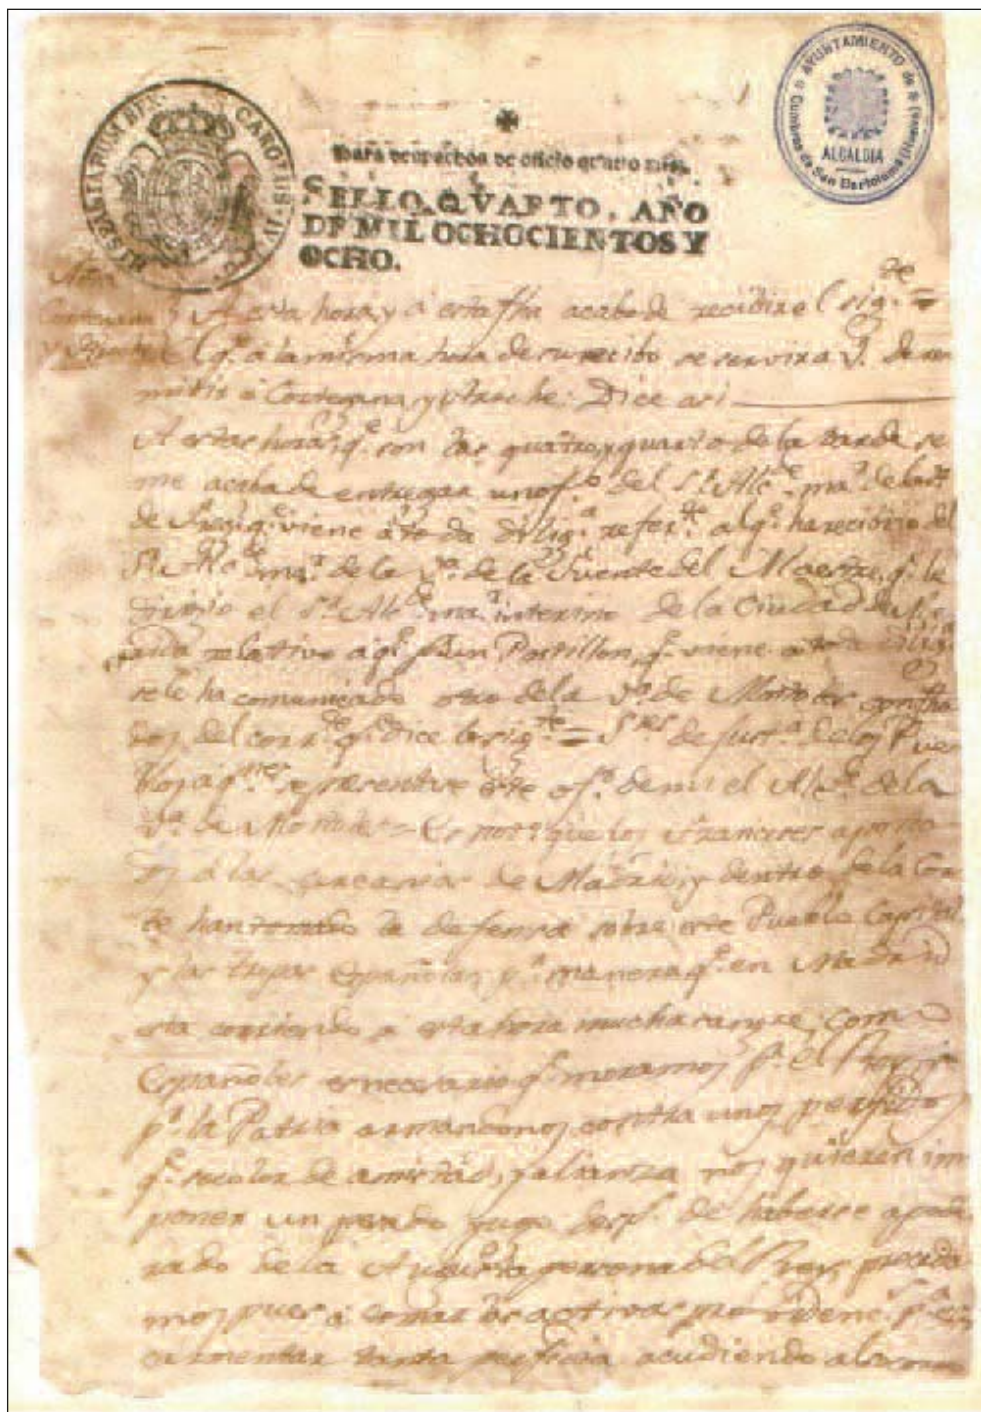 HISPANIARUM REX. CAROLUS IV
AYUNTAMIENTO de
ALCALDIA
Cumbres de San Bartolomé (Huelva)
Para despachos de oficio quatro mrs.
SELLO QVARTO, AÑO
DE MIL OCHOCIENTOS Y
OCHO.
A esta hora, y a esta fha acabo de recibir el sig.te =
el q.e a la misma hora de su recibo se servira V. de re
mitir a Cortegana, y Aroche: Dice asi
A estas horas q.e son las quatro, y quarto de la tarde se
me acaba de entregar un of.o del S.r Alc.e ma.r de la v.a
de q.e viene a toda dilig.a refer.te al q.e ha recibido del
S.r Alc.e ma.r de la V.a de la Fuente del Maestre, q.e le
dirigio el S.r Alc.e ma.r interino de la Ciudad de
relativo a q.e Postillon, q.e viene a toda
se le ha comunicado otro de la V.a de Mostoles con fha
dos del corr.te q.e dice lo sig.te = S.res de Just.a de los Pue
blos a q.nes se presentare este of.o de mi el Alc.e de la
V.a de Mostoles = Es notorio que los Franceses aposta
dos a las cercanias de Madrid, y dentro de la Cor
te han tomado la defensa sobre este Pueblo Capital
y las tropas Españolas, p.r manera q.e en Madrid
esta corriendo a esta hora mucha sangre, como
Españoles es necesario q.e muramos p.r el Rey
p.r la Patria armandonos contra unos perfidos
q.e so color de amistad, y alianza nos quieren im
poner un pesado yugo desp.s de haberse apode
rado de la Augusta persona del Rey, proceda
mos pues a tomar las activas providenc.s p.a es
carmentar tanta perfidia acudiendo al